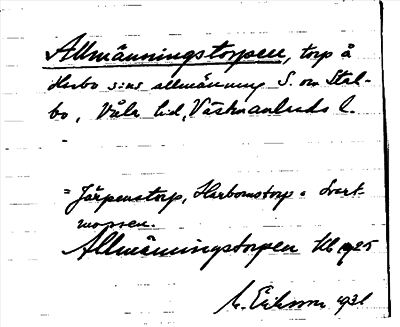 Allmänningstorpen, torp å
Herbo s:ns allmänning S. om Stal-
bo, Våla hd, Västmanlands l.
= Järpenstorp, Harbomstorp o Svart-
mossen.
Allmänningstorpen Kb 1925
E. Eriksson 193